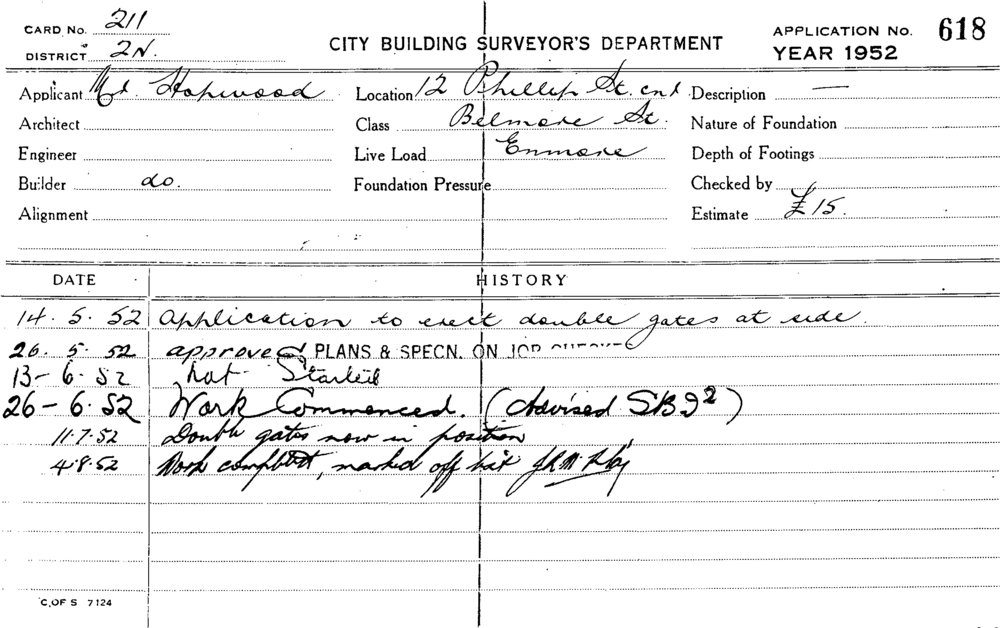 CARD No. 211
DISTRICT 2N.
CITY BUILDING SURVEYOR'S DEPARTMENT
APPLICATION No. 618
YEAR 1952
Applicant Hopwood
Architect
Engineer
Builder do.
Alignment
Location 12 Phillip St. cnr
Class Belmore St.
Live Load Enmore
Foundation Pressure
Description —
Nature of Foundation
Depth of Footings
Checked by
Estimate £15.
DATE HISTORY
14.5.52 Application to erect double gates at side.
26.5.52 approved PLANS & SPECN. ON JOB CHECKED
13-6.52 Not Started
26-6.52 Work Commenced. (Advised SBI²)
11.7.52 Double gates now in position
4.8.52 Work completed, marked off
C. OF S 7124